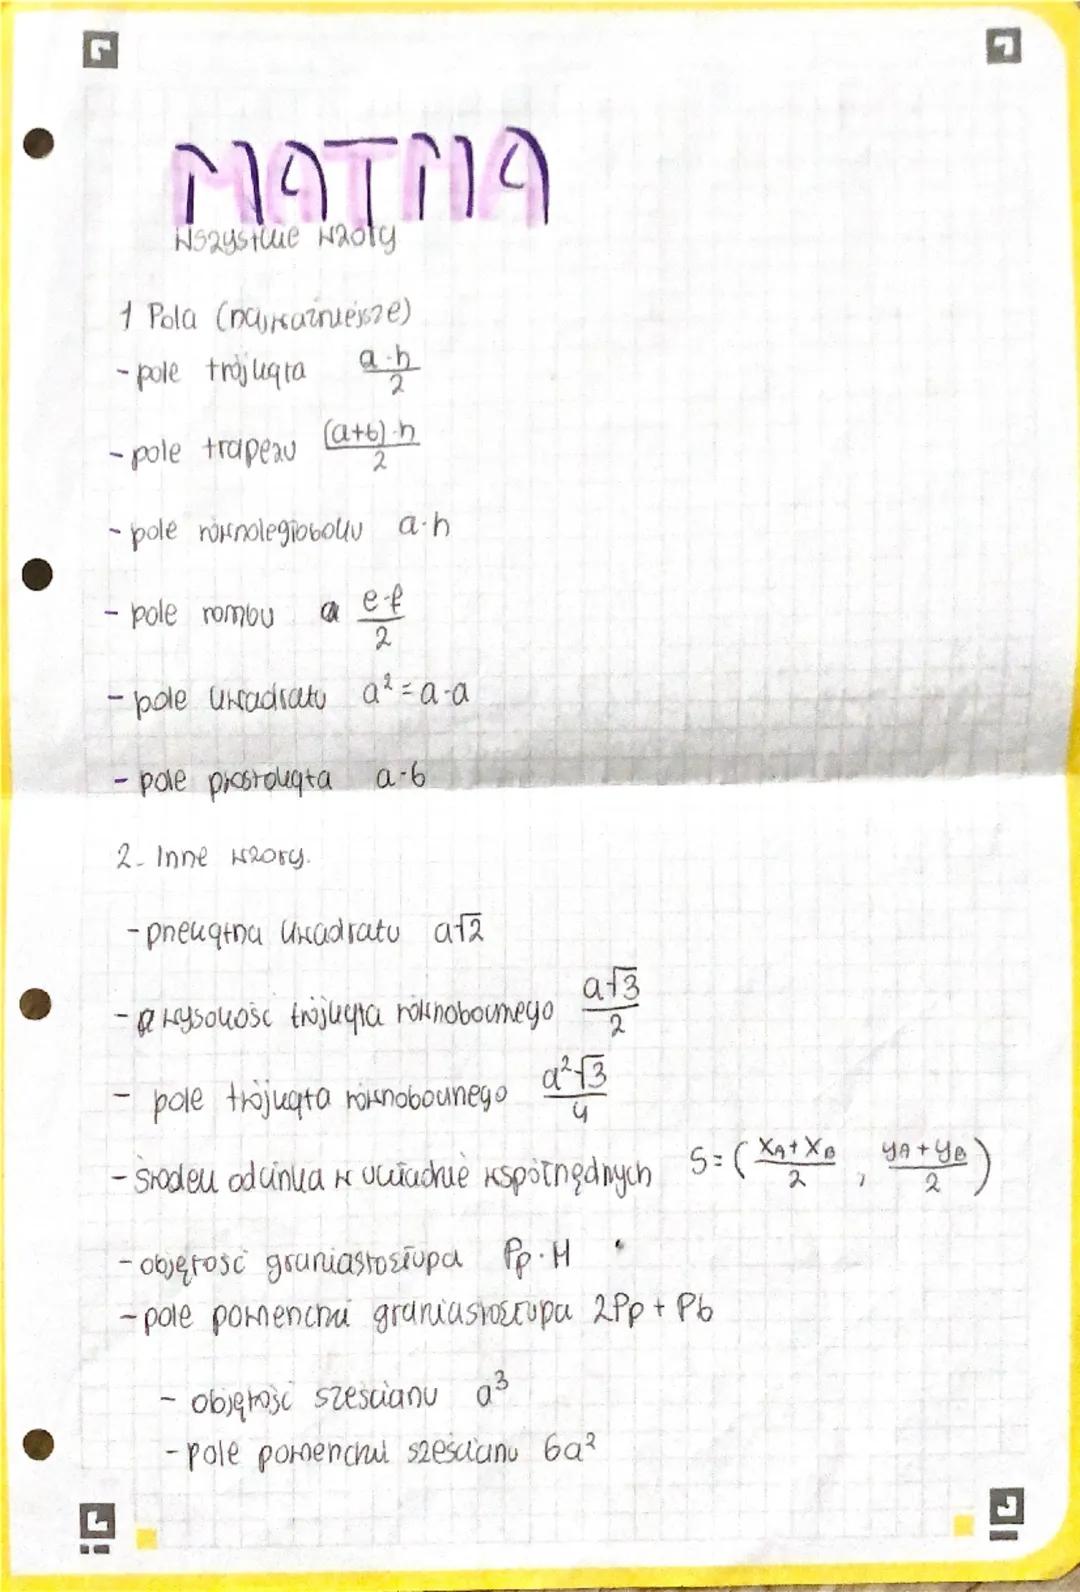 MATMA
wszystkie wzory
1 Pola (najważniejsze)
- pole trójkąta a·h/2
- pole trapezu (a+b)·h/2
- pole równoległoboku a·h
- pole rombu e·f/2
- pole kwadratu a² = a·a
- pole prostokąta a·b
2. Inne wzory.
- przekątna kwadratu a√2
- wysokość trójkąta równobocznego a√3/2
- pole trójkąta równobocznego a²√3/4
- środek odcinka w układzie współrzędnych S = (xA + xB/2, yA + yB/2)
- objętość graniastosłupa Pp · H
- pole powierzchni graniastosłupa 2Pp + Pb
- objętość sześcianu a³
- pole powierzchni sześcianu 6a²